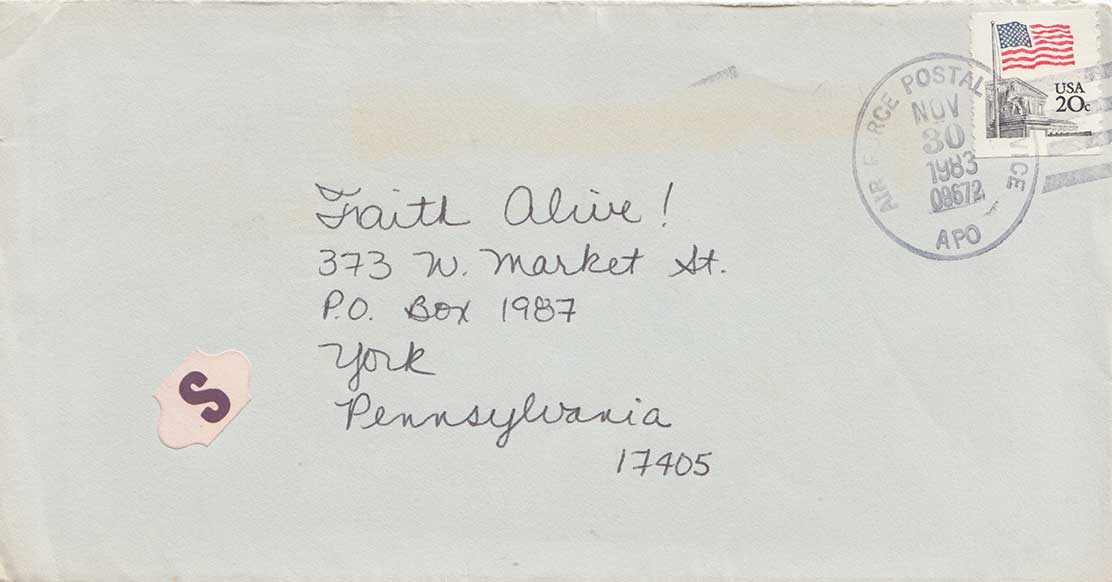 USA
20c
AIR FORCE POSTAL SERVICE
NOV
30
1983
09672
APO
Faith Alive!
373 W. Market St.
P.O. Box 1987
York
Pennsylvania
17405
S